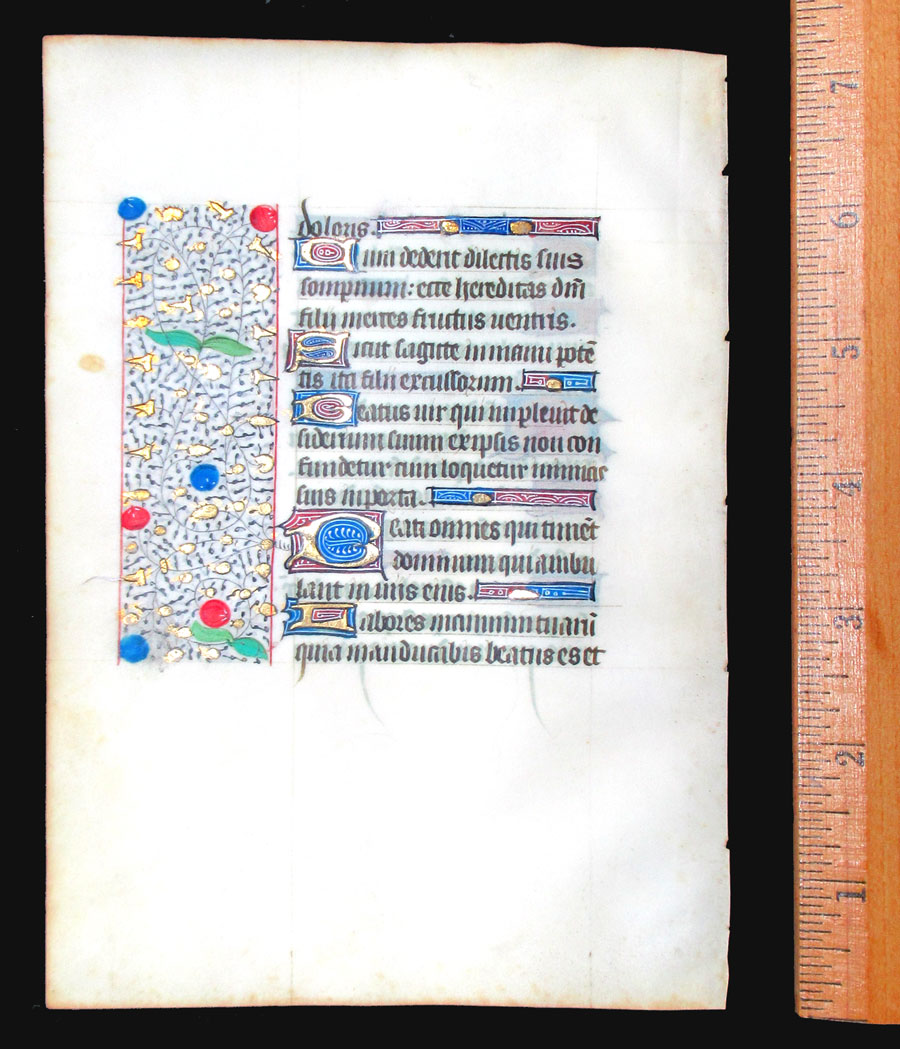 doloris.
Cum dederit dilectis suis
sompnum: ecce hereditas dñi
filii merces fructus uentris.
Sicut sagitte in manu potē
tis ita filii excussorum.
Beatus uir qui impleuit de
siderium suum ex ipsis non con
fundetur cum loquetur inimicis
suis in porta.
Beati omnes qui timēt
dominum qui ambu
lant in uiis eius.
Labores manuum tuarū
quia manducabis beatus es et
7
6
5
4
3
2
1